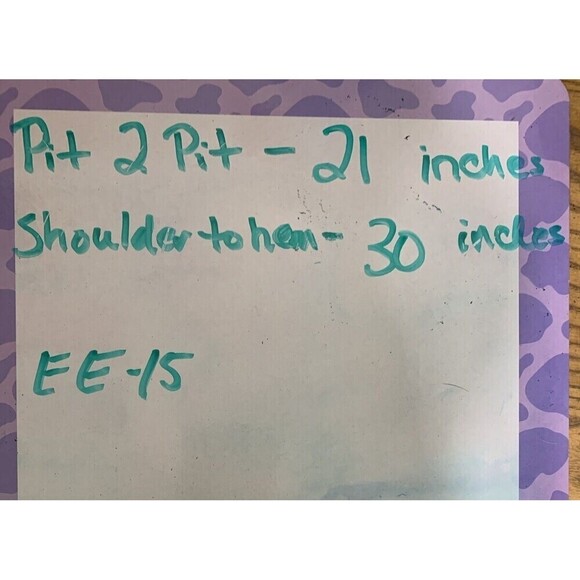 Pit 2 Pit - 21 inches
Shoulder to hem - 30 inches
EE-15